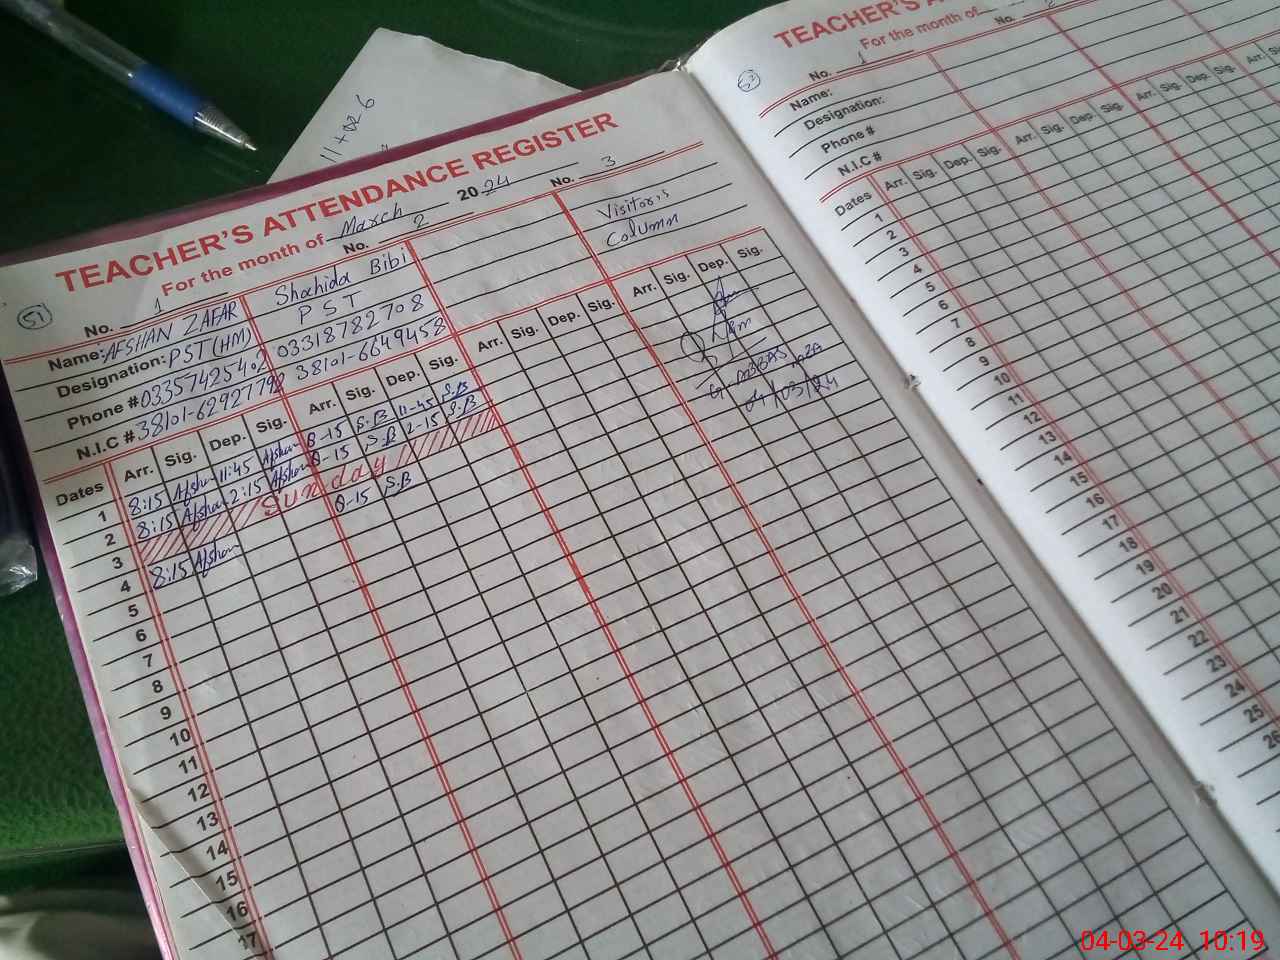 11+02 6
TEACHER'S ATTENDANCE REGISTER
For the month of March 2024
51
No. 1
No. 2
No. 3
Name: AFSHAN ZAFAR
Shahida Bibi
Visitor,s
Designation: PST (HM)
P S T
Column
Phone # 03357425402
03318782708
N.I.C # 38101-6292779
38101-6649458
Dates Arr. Sig. Dep. Sig. Arr. Sig. Dep. Sig. Arr. Sig. Dep. Sig. Arr. Sig. Dep. Sig.
1 8:15 Afshan 11:45 Afshan 8-15 S.B 11-45 S.B
2 8:15 Afshan 2:15 Afshan 8-15 S.B 2-15 S.B
3 Sunday
4 8:15 Afshan 8-15 S.B
ABBAS
04/03/24
5
6
7
8
9
10
11
12
13
14
15
16
17
TEACHER'S A
For the month of
52
No. 1
No. 2
Name:
Designation:
Phone #
N.I.C #
Dates Arr. Sig. Dep. Sig. Arr. Sig. Dep. Sig. Arr. Sig. Dep. Sig. Arr.
1
2
3
4
5
6
7
8
9
10
11
12
13
14
15
16
17
18
19
20
21
22
23
24
25
26
04-03-24 10:19